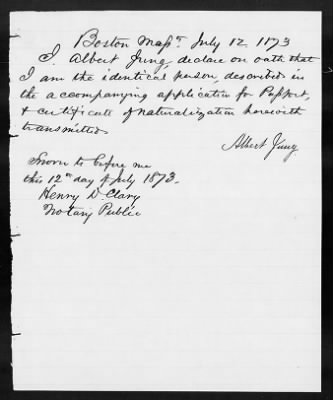 Boston Mass. July 12. 1173
I, Albert Jung, declare on oath that
I am the identical person, described in
the accompanying application for Passport,
& certificate of naturalization herewith
transmitted
Albert Jung.
Sworn to before me
this 12th day of July 1873.
Henry D. Clary
Notary Public